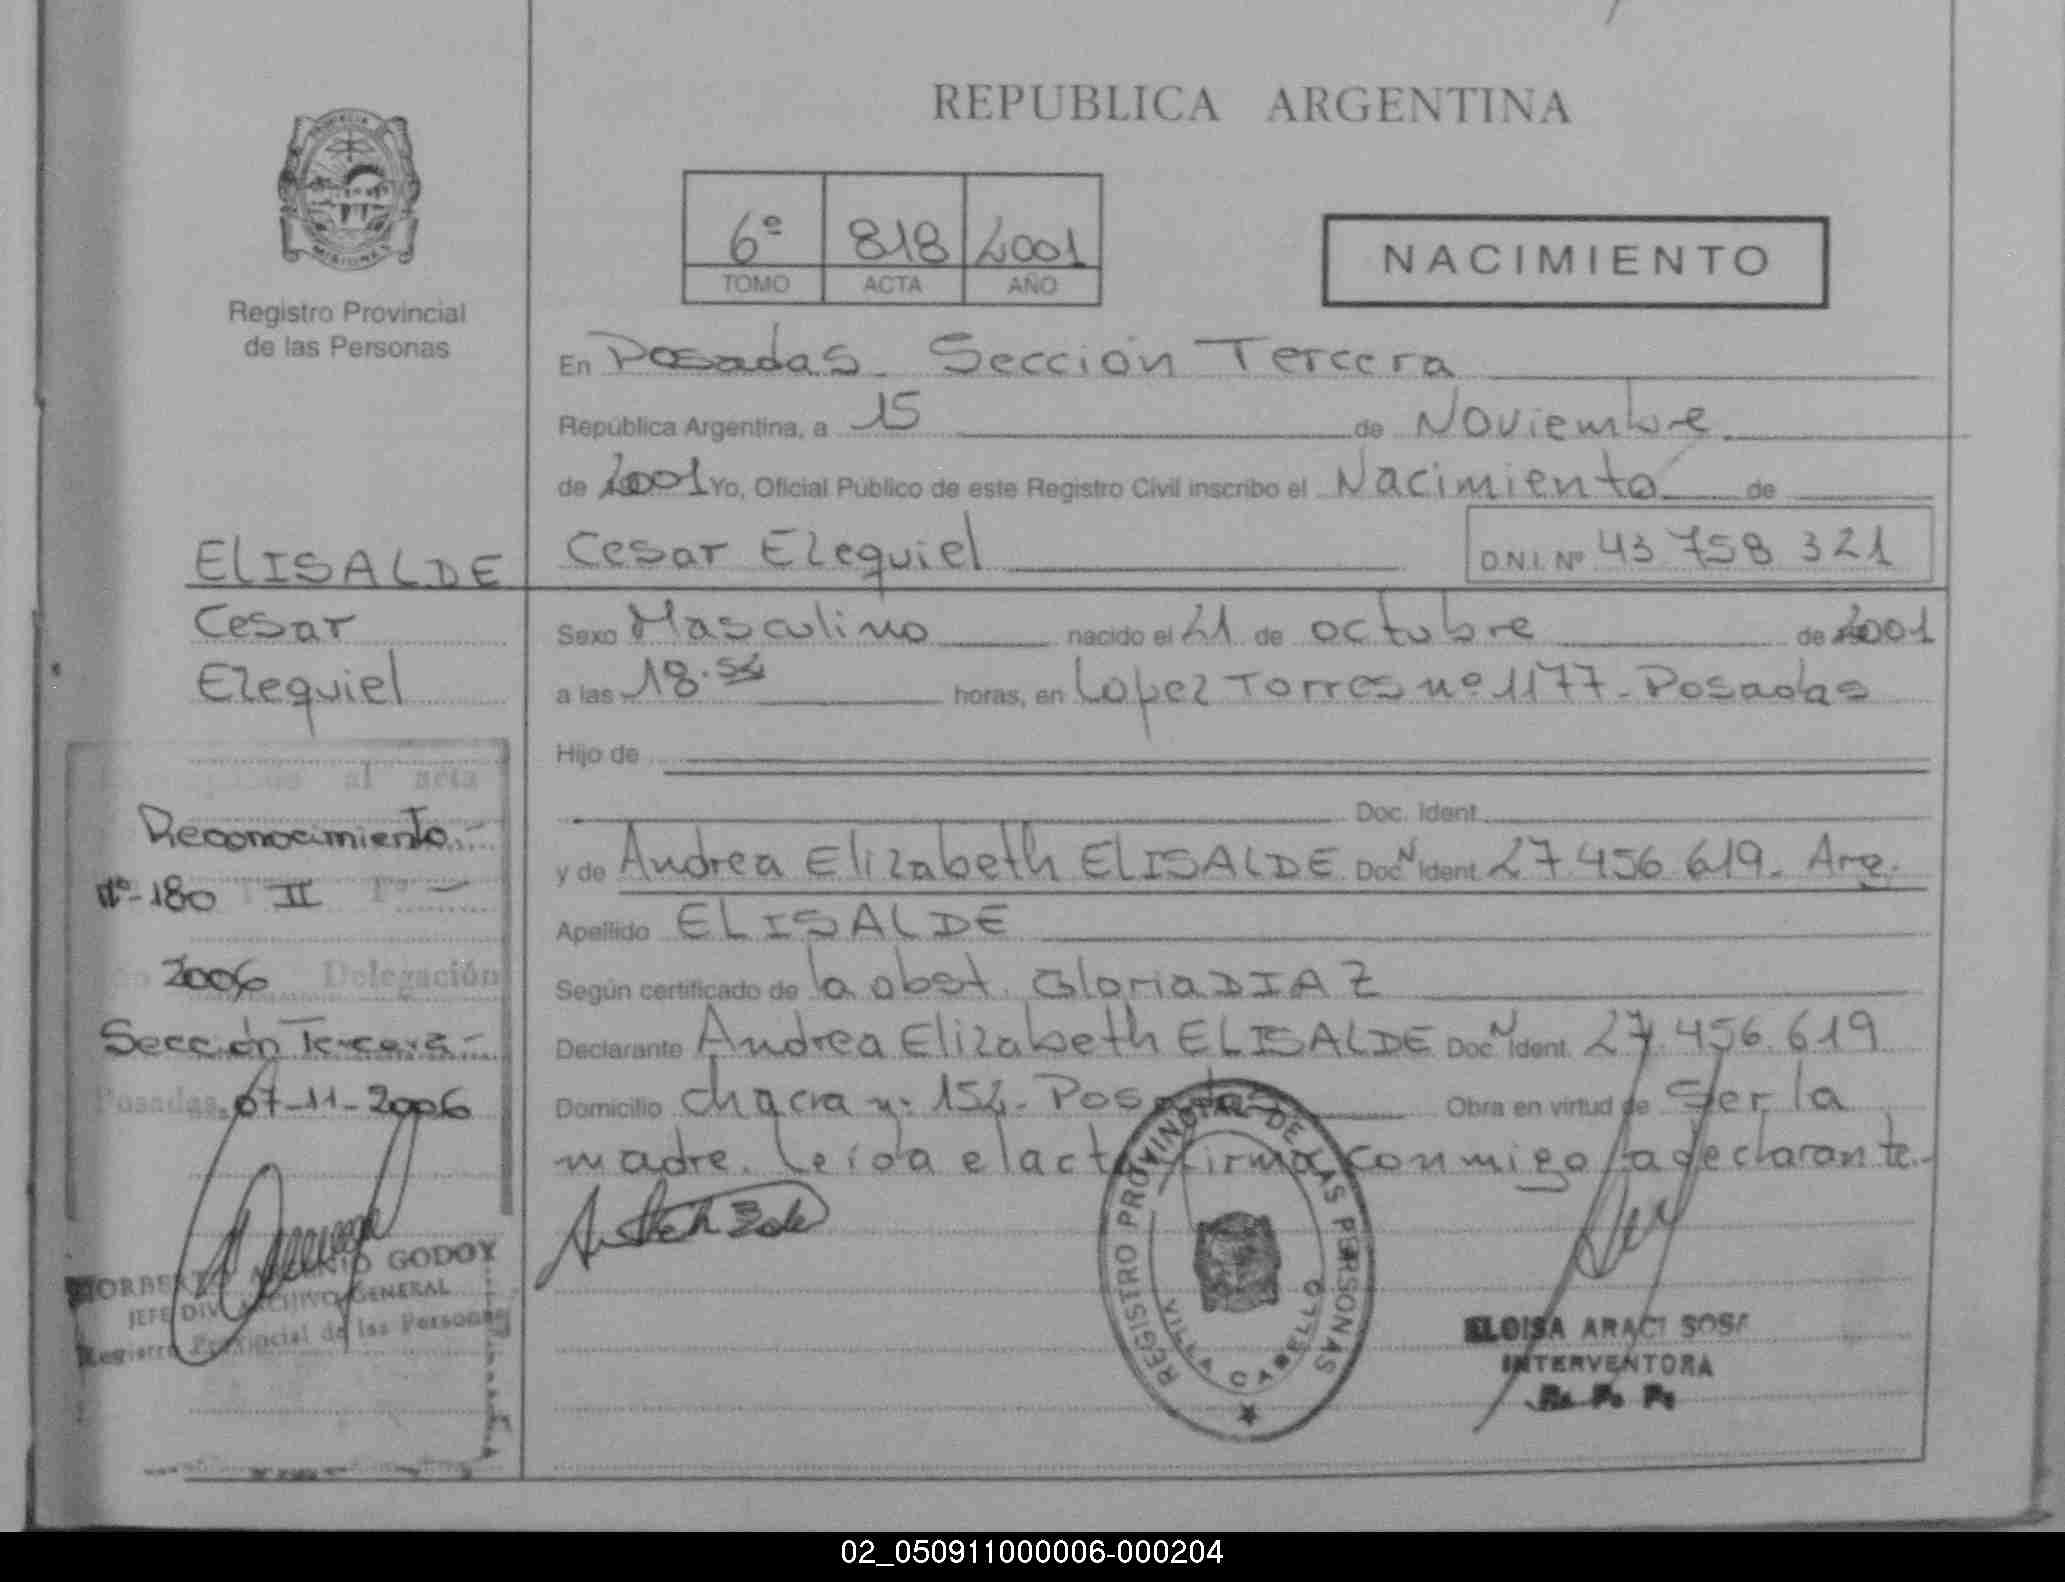 REPUBLICA ARGENTINA
6º 818 2001
TOMO ACTA AÑO
NACIMIENTO
MISIONES
Registro Provincial
de las Personas
En Posadas. Sección Tercera
República Argentina, a 15 de Noviembre
de 2001 Yo, Oficial Público de este Registro Civil inscribo el Nacimiento de
Cesar Ezequiel D.N.I. Nº 43 758 321
Sexo Masculino nacido el 21 de octubre de 2001
a las 18.54 horas, en Lopez Torres nº 1177 - Posadas
Hijo de
Doc. Ident.
y de Andrea Elizabeth ELISALDE Doc N Ident. 27 456 619. Arg.
Apellido ELISALDE
Según certificado de la obst. Gloria DIAZ
Declarante Andrea Elizabeth ELISALDE Doc. N Ident. 27.456.619
Domicilio chacra nº 154. Posadas Obra en virtud de Ser la
madre. Leída el acta firma conmigo la declarante.
ELISALDE
Cesar
Ezequiel
al acta
Reconocimiento.-
Nº-180 T II Fº -
2006 Delegación
Sección Tercera-
Posadas, 07-11-2006
NORBERTO GODOY
JEFE DIV. ARCHIVO GENERAL
Registro Provincial de las Personas
REGISTRO PROVINCIAL DE LAS PERSONAS
VILLA CABELLO
ELOISA ARACI SOSA
INTERVENTORA
R. P. P.
02_050911000006-000204